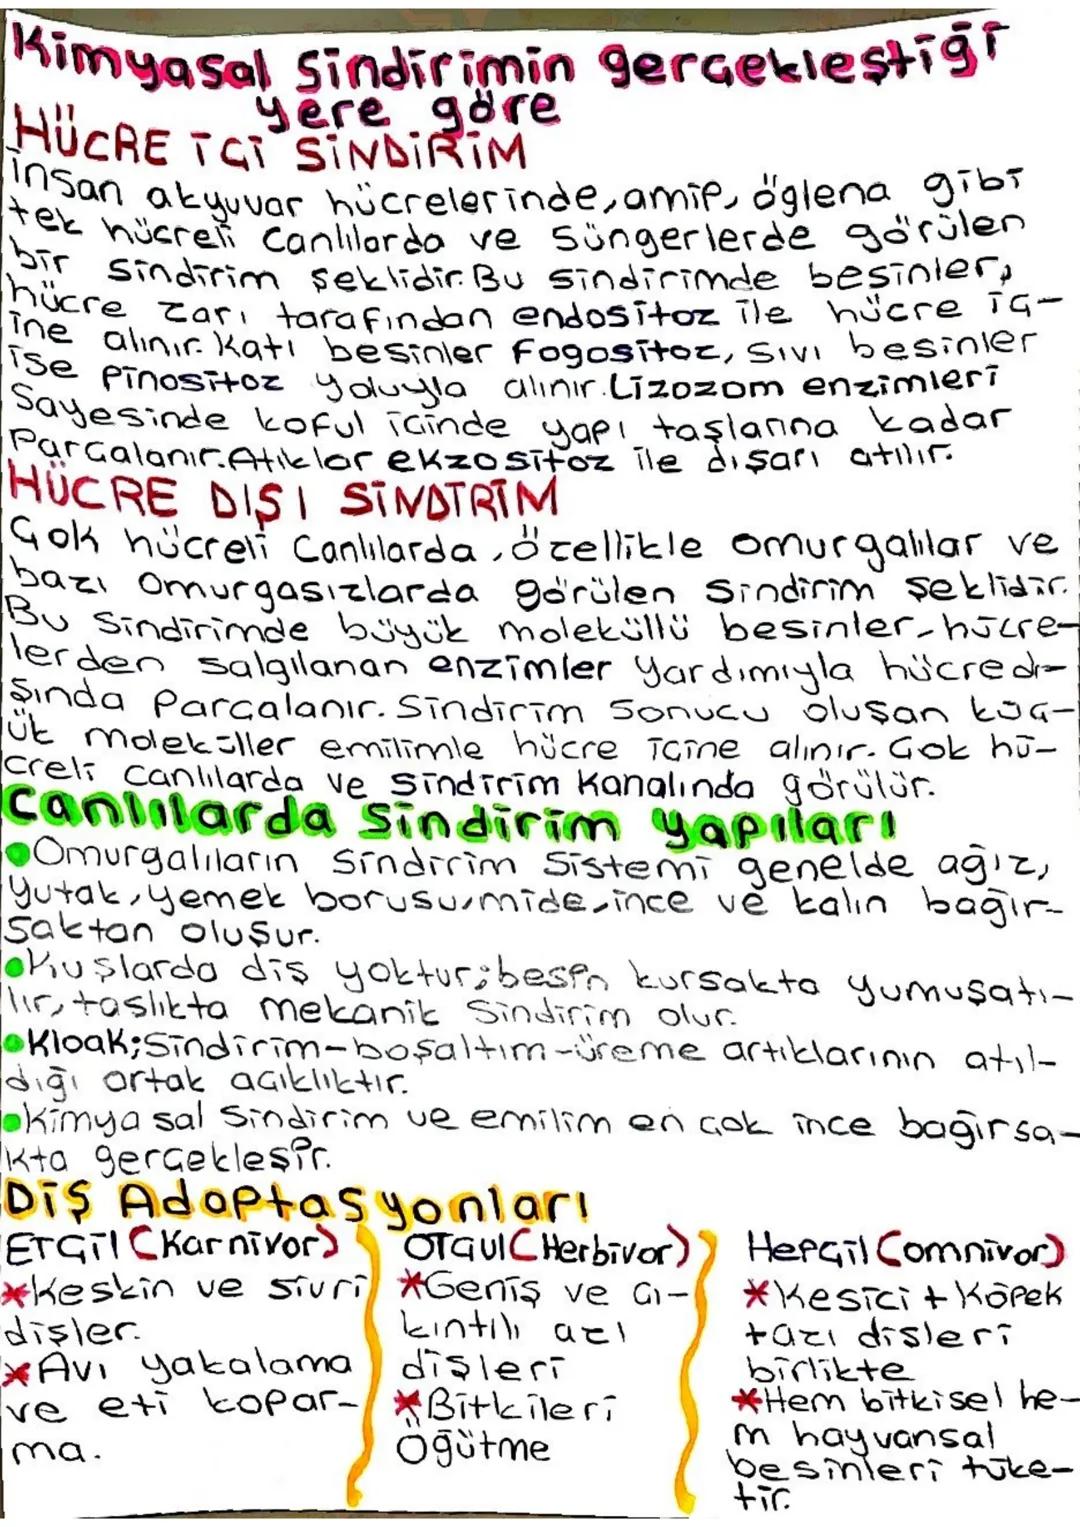 Kimyasal Sindirimin gerçekleştiği
yere göre
HÜCRE İÇİ SİNDİRİM
İnsan akyuvar hücrelerinde, amip, öglena gibi
tek hücreli canlılarda ve süngerlerde görülen
bir sindirim şeklidir. Bu sindirimde besinler,
hücre zarı tarafından endositoz ile hücre iç-
ine alınır. Katı besinler Fogositoz, sıvı besinler
ise pinositoz yoluyla alınır. Lizozom enzimleri
Sayesinde koful içinde yapı taşlarına kadar
Parçalanır. Atıklar ekzositoz ile dışarı atılır.
HÜCRE DIŞI SİNDİRİM
Çok hücreli Canlılarda, özellikle omurgalılar ve
bazı omurgasızlarda görülen sindirim şeklidir.
Bu Sindirimde büyük moleküllü besinler, hücre-
lerden salgılanan enzimler yardımıyla hücre dı-
şında Parçalanır. Sindirim Sonucu oluşan küç-
ük moleküller emilimle hücre içine alınır. Çok hü-
creli canlılarda ve sindirim Kanalında görülür.
Canlılarda Sindirim yapıları
Omurgalıların Sindirim Sistemi genelde ağız,
yutak, yemek borusu, mide, ince ve kalın bağır-
saktan oluşur.
Kuşlarda diş yoktur; besin kursakta yumuşatı-
lır, taşlıkta mekanik Sindirim olur.
Kloak; Sindirim-boşaltım-üreme artıklarının atıl-
dığı ortak açıklıktır.
Kimya sal Sindirim ve emilim en çok ince bağırsa-
kta gerçekleşir.
Diş Adaptasyonları
ETÇİL (Karnivor)
*Keskin ve sivri
dişler.
*Avı yakalama
ve eti kopar-
ma.
OTÇUL (Herbivor)
*Geniş ve çı-
kıntılı azı
dişleri
*Bitkileri
Öğütme
HepÇil (omnivor)
*Kesici + Köpek
+azı dişleri
birlikte
*Hem bitkisel he-
m hayvansal
besinleri tüke-
tir.